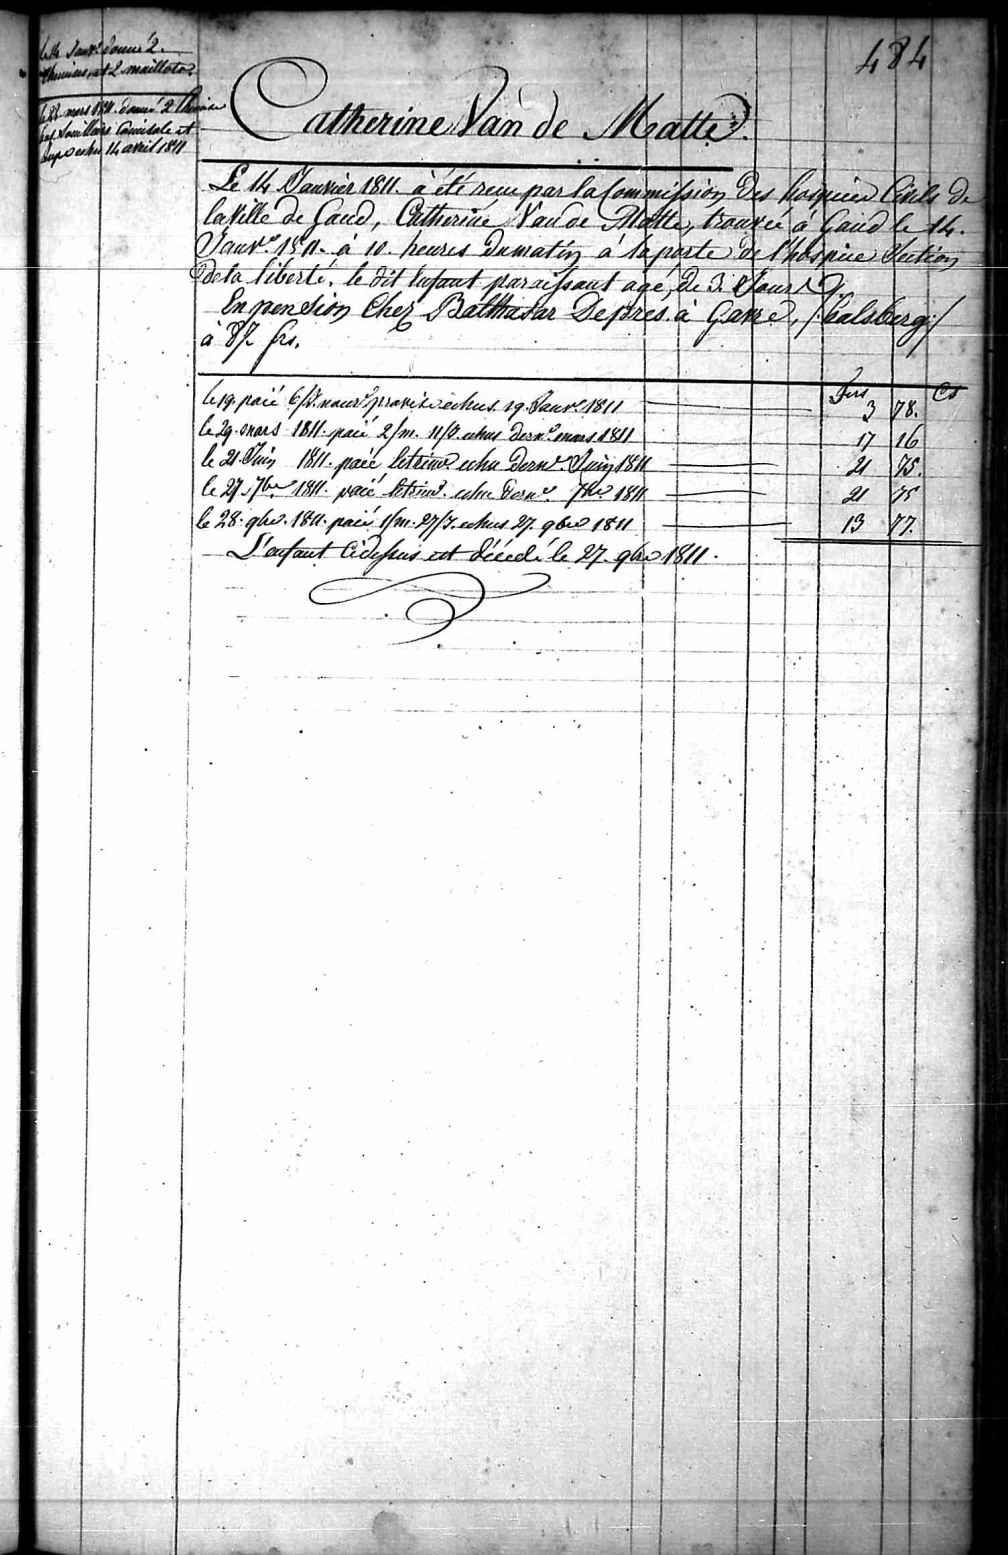 484
le 14 Janvr. donné 2.
chemises et 2 maillots
le 28 mars 1811. donné 2 Chemises
bas Souilliers Camisole et
Jupe echu 14 avril 1811
Catherine Van de Matte.
Le 14 Janvier 1811. à été recue par la Commission Des hospices Civils de
la Ville de Gand, Catherine Van de Matte, trouvée à Gand le 14.
Janvr. 1811. à 10. heures Du matin à la porte de l'hospice Section
de la liberté. le dit Enfant paraissant agé, de 3. Jours
En pension Chez Balthasar Depres. à Gavre, /:Calsberg:/
à 87 frs.
frs Cs
le 19. paié 6/J. nourre. provisre. echus. 19. Janvr. 1811 3 78.
le 29. mars 1811. paié 2/m. 11/J. echus dernr. mars 1811 17 16
le 21. Juin 1811. paié le trimre. echu Dernr. Juin 1811 21 75.
le 27. 7bre 1811. paié le trimre. echu Dernr. 7bre 1811 21 75
le 28. 9bre. 1811. paié 1/m. 27/J. echus 27. 9bre 1811 13 77.
L'enfant Cidessus est décédé le 27. 9bre 1811.